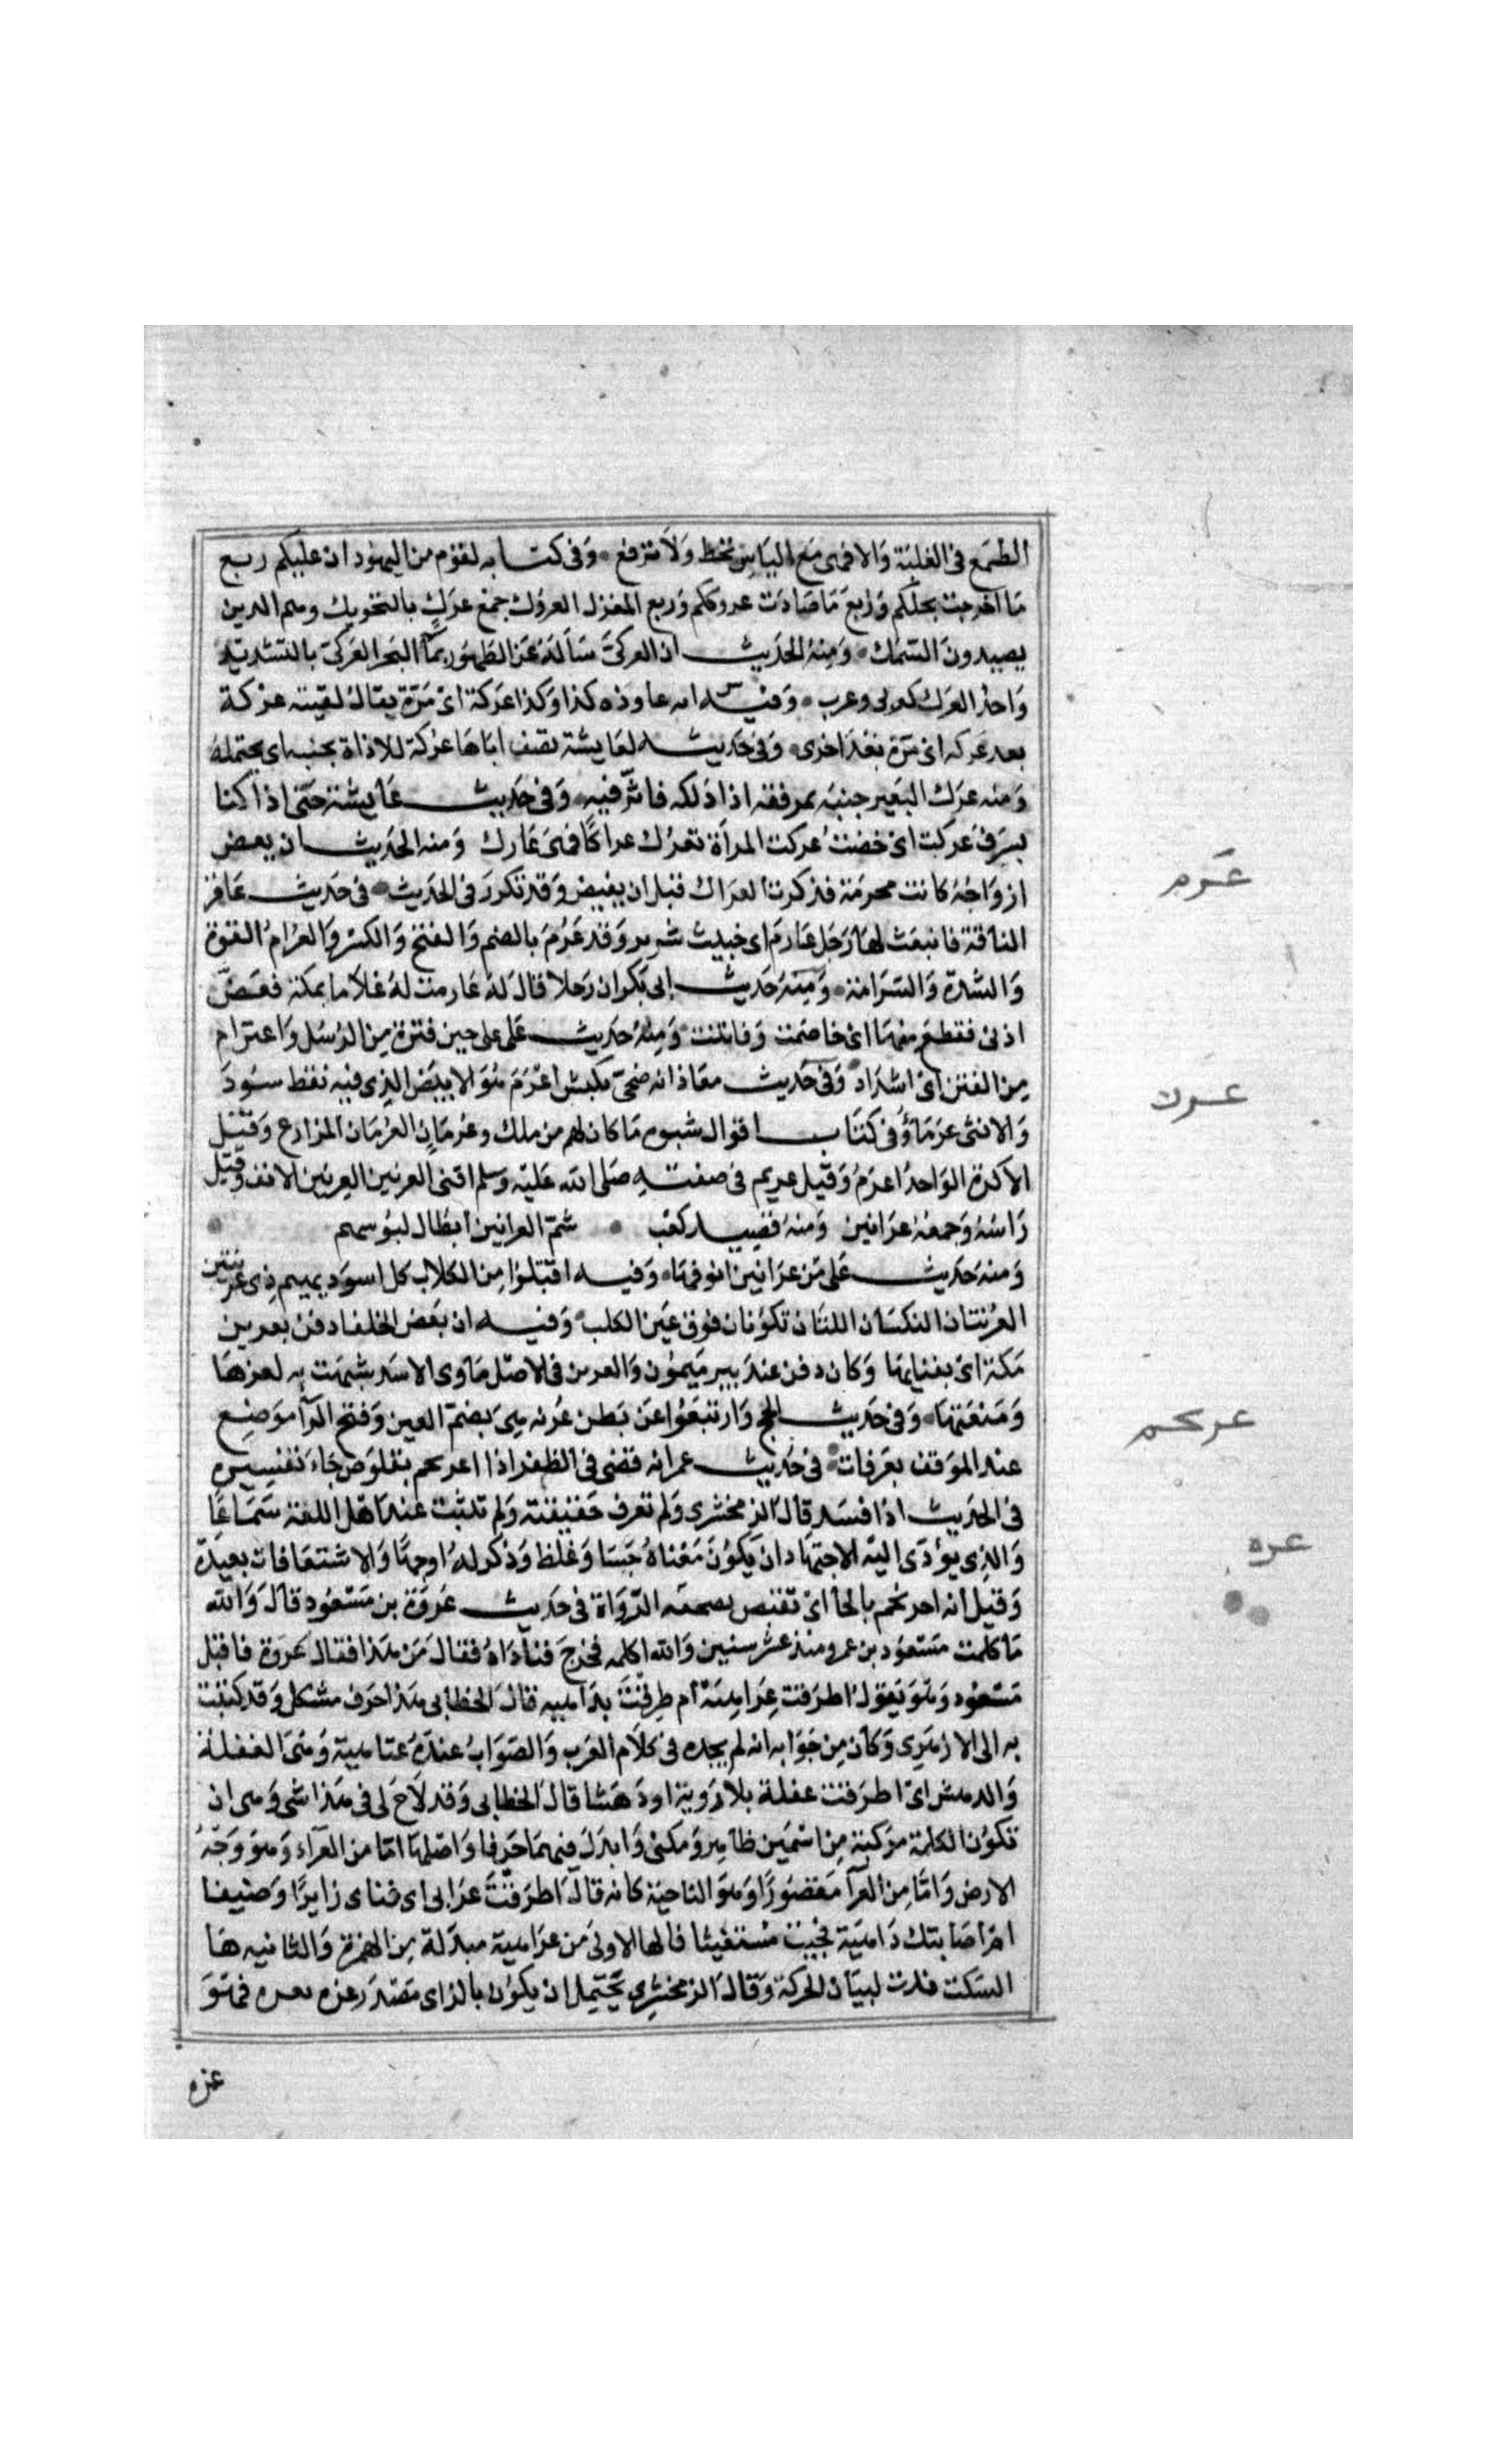 الطمع في الغلبة والا فهي مع الياس تخط ولا ترفع وفي كتابه لقوم من اليهود ان عليكم ربع
ما اخرجت نخلكم وربع ما صادت عروككم وربع المغزل العروك جمع عرك بالتحريك وهم الذين
يصيدون السمك ومنه الحديث ان العركي سأله عن الطهور بماء البحر العركي بالتشديد
واحد العرك كعربي وعرب وفيه انه عاوده كذا وكذا عركة اي مرة يقال لقيته عركة
بعد عركه اي مرة بعد اخرى وفي حديث لعايشة تصف اباها عركة للاذاة بجنبه اي يحتمله
ومنه عرك البعير جنبه بمرفقه اذا دلكه فاثر فيه وفي حديث عايشة حتى اذا كنا
بسرف عركت اي حضت عركت المرأة تعرك عراكا فهي عارك ومنه الحديث ان بعض
ازواجه كانت محرمة فذكرت العراك قبل ان يفيض وقد تكرر في الحديث في حديث عاقر
الناقة فانبعث لها رجل عارم اي خبيث شرير وقد عرم بالضم والفتح والكسر والعرام القوة
والشدة والشراسة ومنه حديث ابي بكر ان رجلا قال له عارمت له غلاما بمكة فعض
اذني فقطع منها اي خاصمت وقاتلت ومنه حديث علي على حين فترة من الرسل واعترام
من الفتن اي اشتداد وفي حديث معاذ انه ضحى بكبش اعرم هو الابيض الذي فيه نقط سود
والانثى عرماؤ في كتاب اقوال شبوه ما كان لهم من ملك وعرمان العرمان المزارع وقيل
الاكرة الواحد اعرم وقيل عريم في صفته صلى الله عليه وسلم اقنى العرنين العرنين الانف وقيل
راسه وجمعه عرانين ومنه قصيد كعب شم العرانين ابطال لبوسهم
ومنه حديث علي من عرانين انوفها وفيه اقتلوا من الكلاب كل اسود بهيم ذي عرنتين
العرنتان النكتتان اللتان تكونان فوق عين الكلب وفيه ان بعض الخلفا دفن بعرين
مكة اي بفنايها وكان دفن عند بير ميمون والعرين في الاصل ماوى الاسد شبهت به لعزها
ومنعتها وفي حديث الحج وارتفعوا عن بطن عرنه هي بضم العين وفتح الرا موضع
عند الموقف بعرفات في حديث عمر انه قضى في الظفر اذا اعرنجم بقلوص جاء تفسيره
في الحديث اذا فسد قال الزمخشري ولم تعرف حقيقته ولم تثبت عند اهل اللغة سماعا
والذي يؤدي اليه الاجتهاد ان يكون معناه جسا وغلظ وذكر له اوجها والاشتقاقات بعيدة
وقيل انه احرنجم بالحا اي تقبض بصحفه الرواة في حديث عروة بن مسعود قال والله
ما كلمت مسعود بن عمرو منذ عشر سنين والله اكلمه فخرج فناداه فقال من هذا فقال عروة فاقبل
مسعود وهو يقول اطرقت عراهية ام طرقت بداهيه قال الخطابي هذا حرف مشكل وقد كتبت
به الى الازهري وكان من جوابه انه لم يجده في كلام العرب والصواب عنده عتاهية وهي الغفلة
والدهش اي اطرقت غفلة بلا روية او دهشا قال الخطابي وقد لاح لي في هذا شي وهي ان
تكون الكلمة مركبة من اسمين ظاهر ومكنى وابدل فيهما حرفا واصلها اما من العراء وهو وجه
الارض واما من العرا مقصورا وهو الناحية كانه قال اطرقت عرايي اي فناي زايرا وضيفا
ام اصابتك داهية فجيت مستغيثا فالها الاولى من عراهية مبدلة من الهمزة والثانيه ها
السكت زيدت لبيان الحركة وقال الزمخشري يحتمل ان يكون بالزاي مصدر عزه يعزه فهو
عزه
عرم
عرن
عرنجم
عره